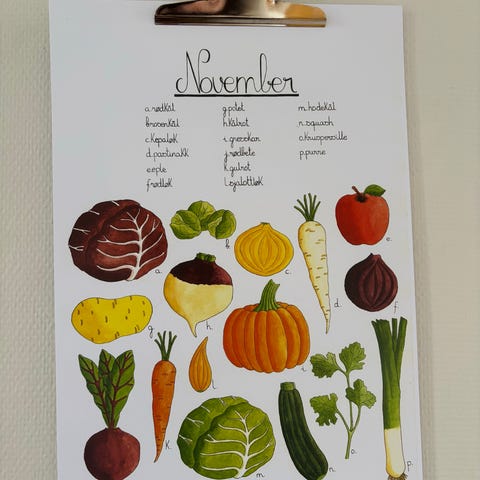 November
a.rødkål
b.rosenkål
c.kepaløk
d.pastinakk
e.eple
f.rødløk
g.potet
h.kålrot
i.gresskar
j.rødbete
k.gulrot
l.sjalottløk
m.hodekål
n.squash
o.kruspersille
p.purre
a.
b.
c.
d.
e.
f.
g.
h.
i.
k.
l.
m.
n.
o.
p.